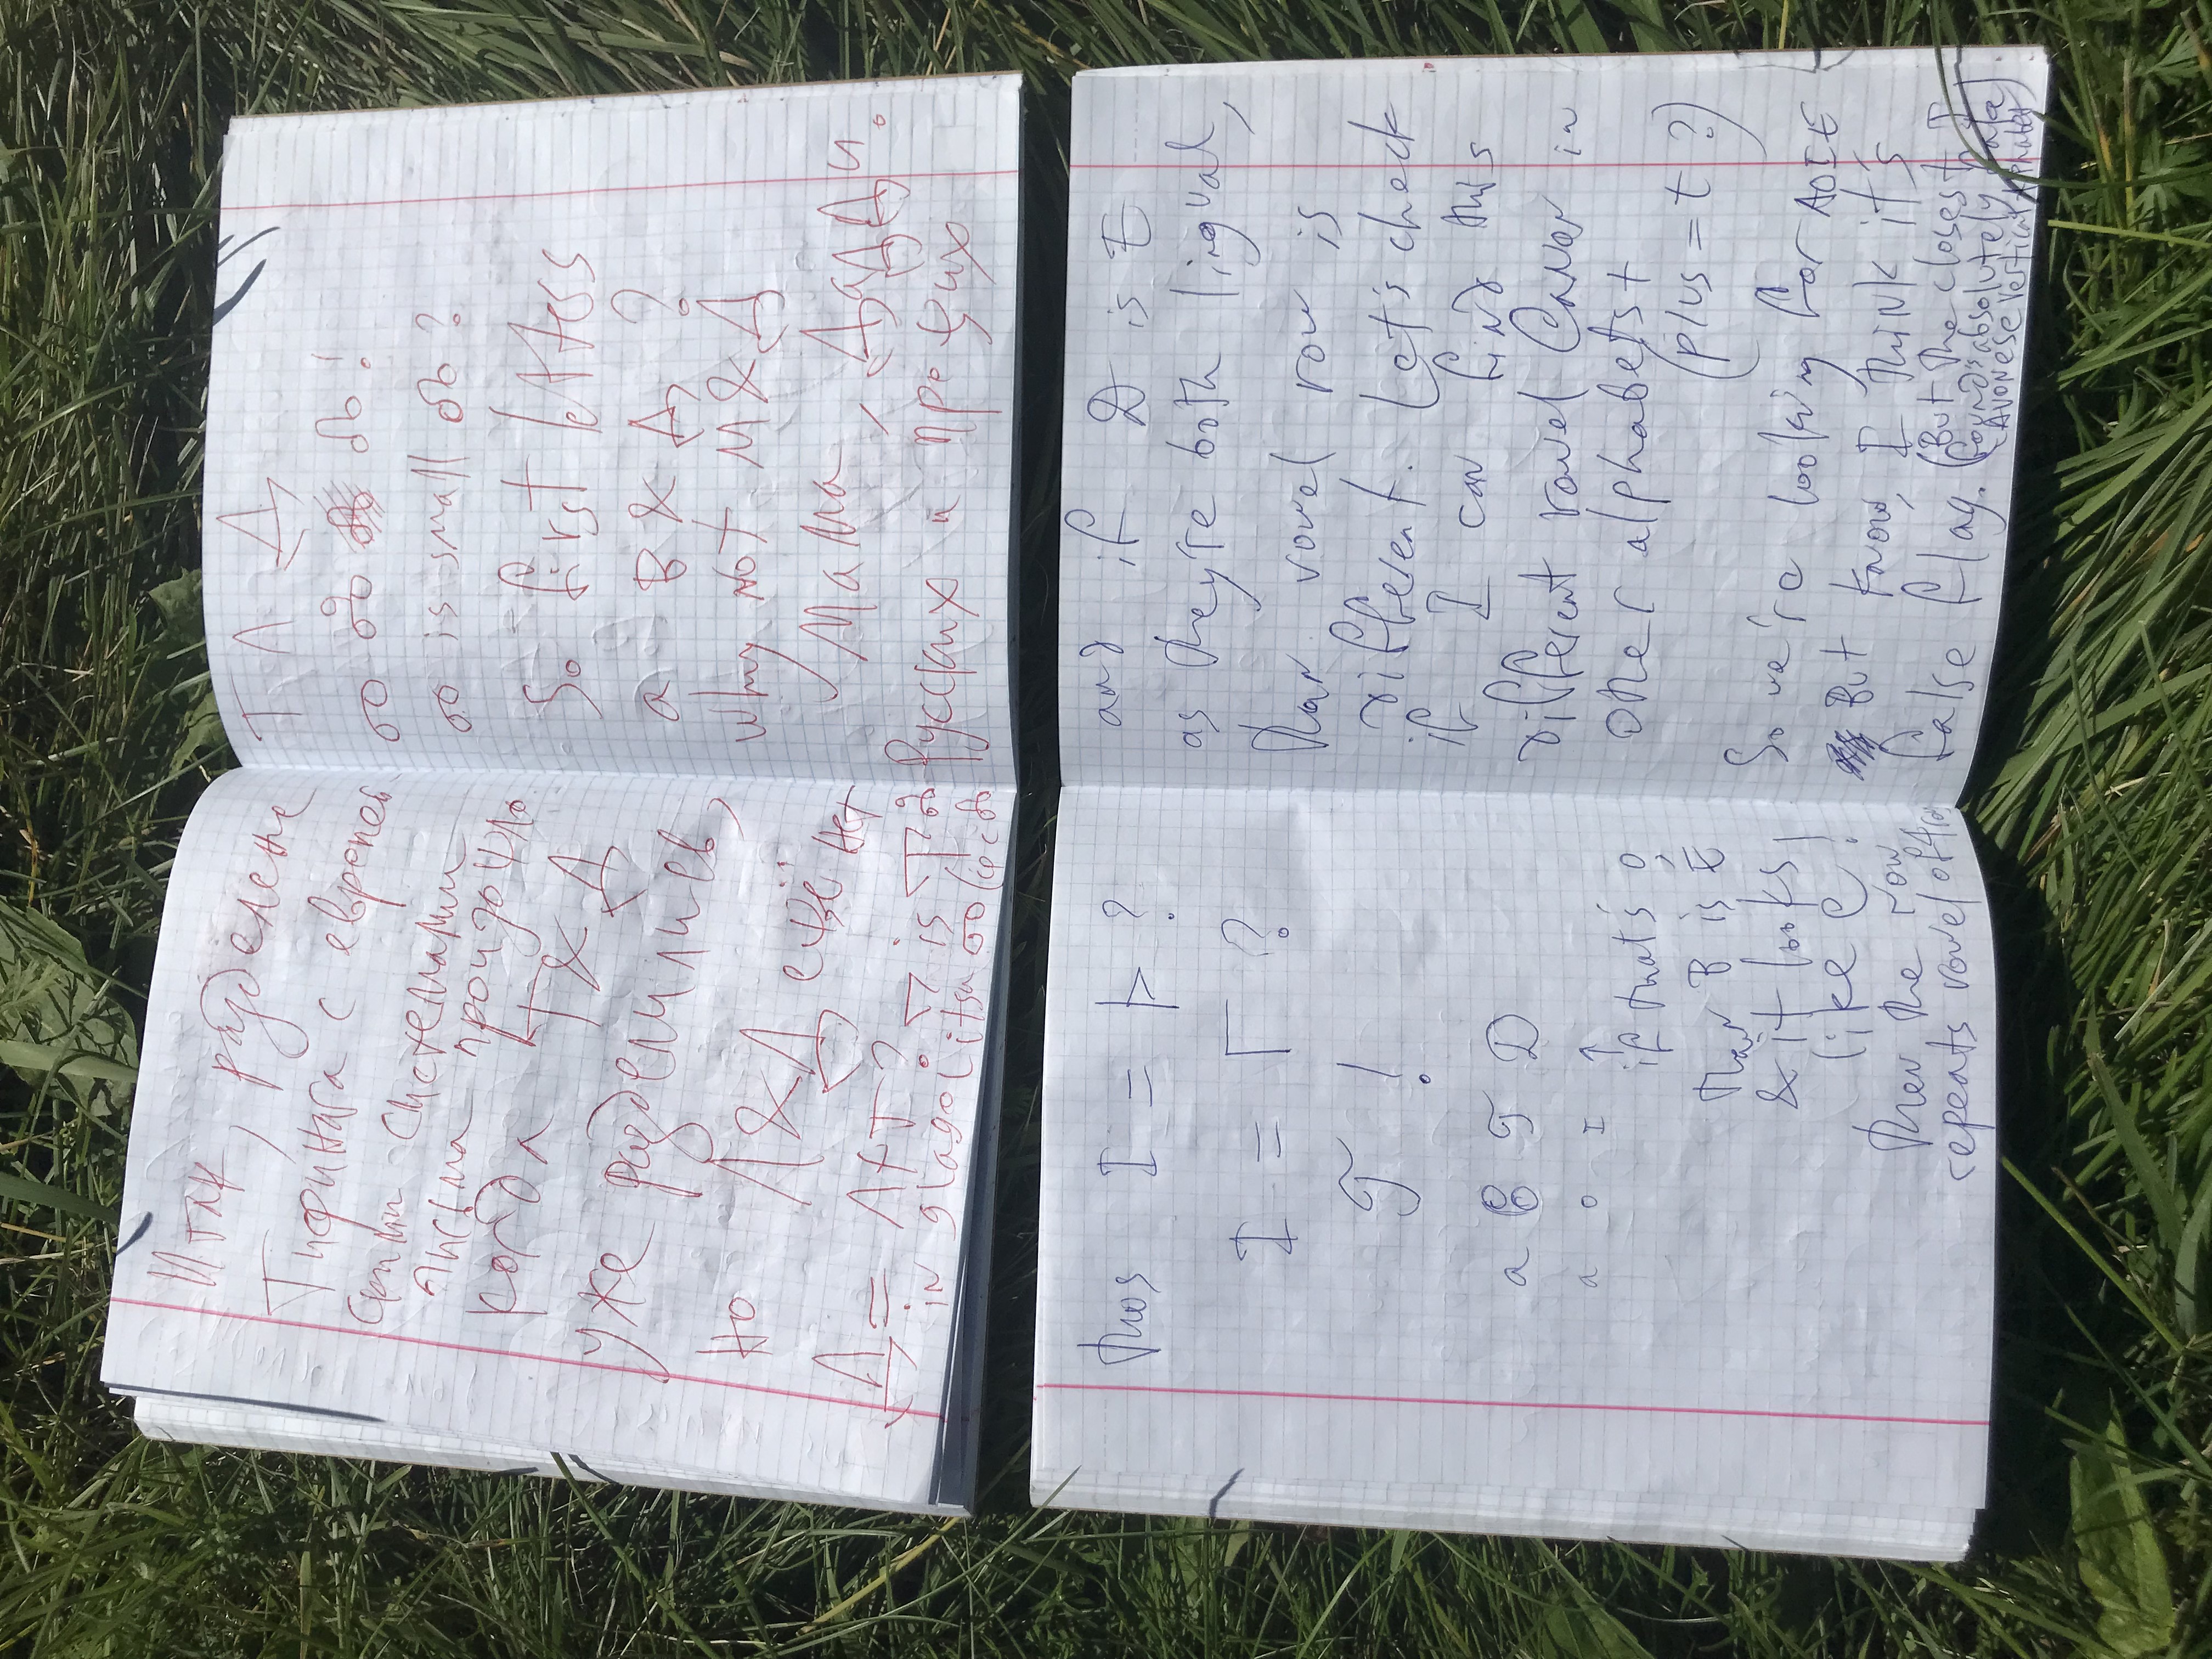 Итак, разделение
Тифинага с европей-
скими системами
письма произошло
когда Т & Д
уже разделились,
но Л & Д ещё нет
Д = Л + Т ? ▽ is
in glagolitsa
Т Л Д
is small
So first letters
a B & Д ?
why not M & Д
Мама, Дадди.
Русских и прочих
thos I = ?
I = Г ?
T !
a B T D
a o I ↑
if that's o,
than B is E
& it looks
like e !
then the row
repeats vowel
and if D is E
as they're both lingual,
than vowel row is
different. Let's check
if I can find this
different vowel Canon in
other alphabets +
(plus = t ?)
So we're looking for AOIE
But know, I think it's
false flag. (But the closest I
found's absolutely fake
Avonese vertical alphabet)